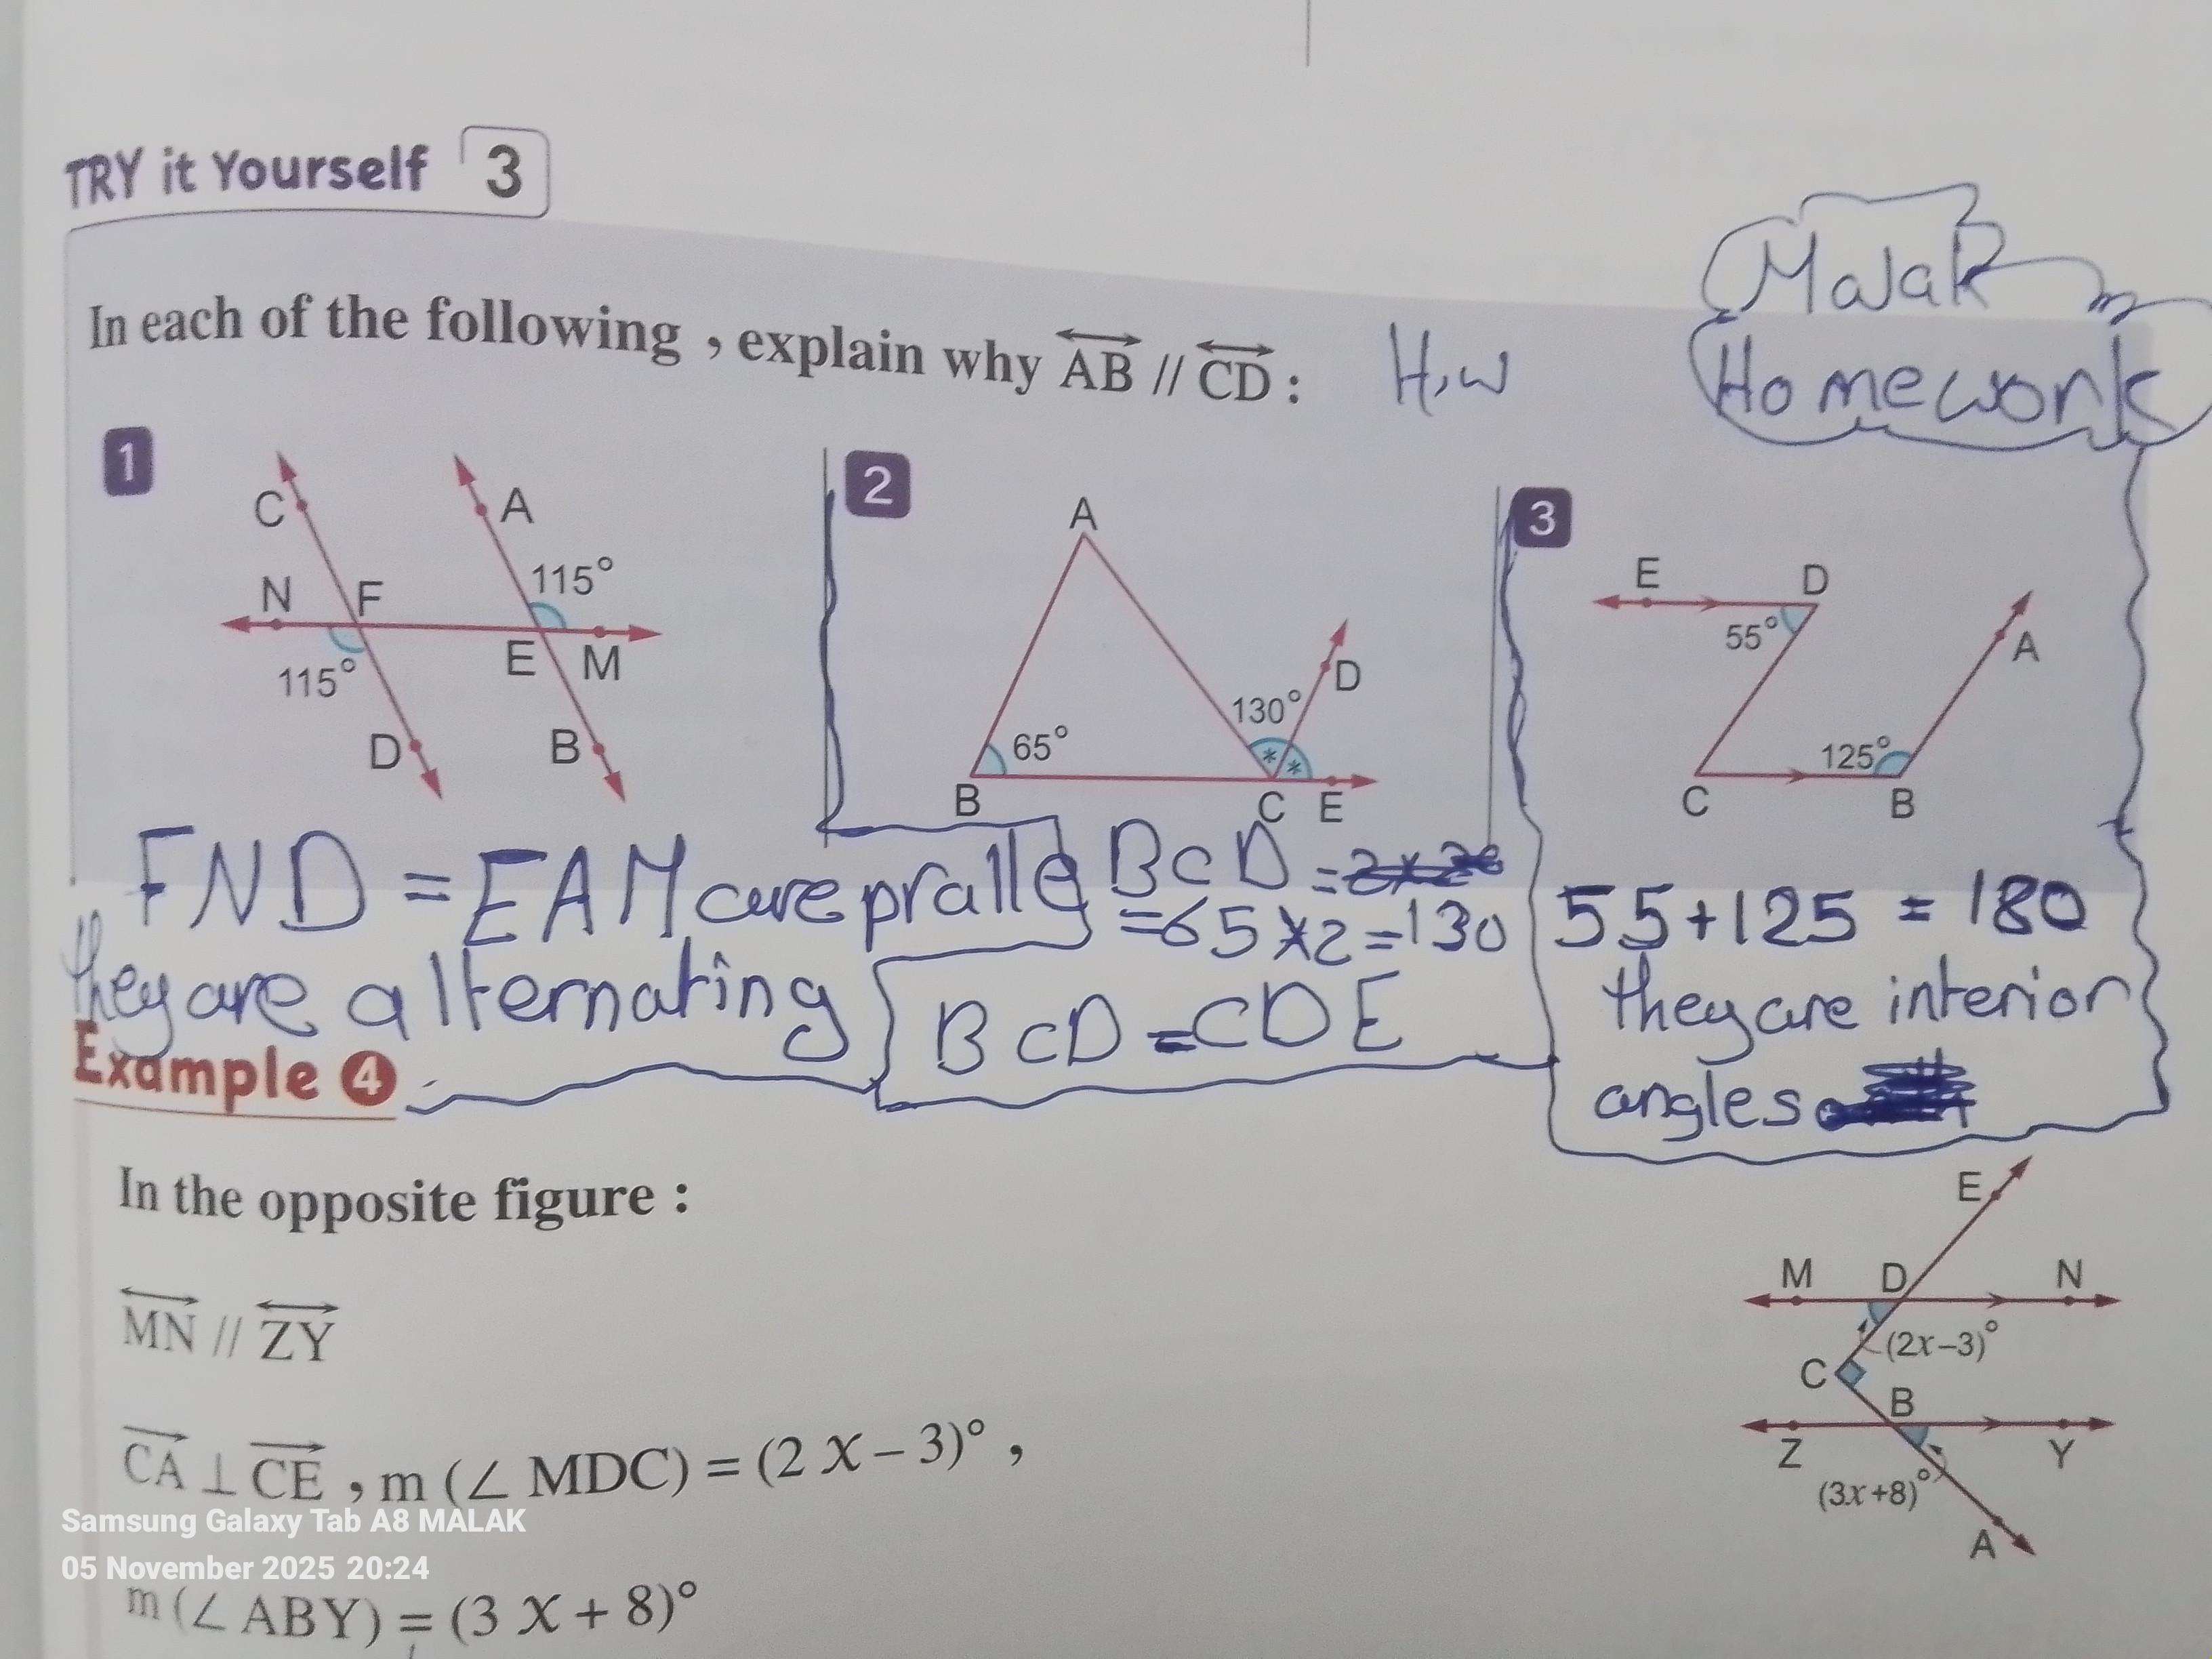 TRY it Yourself 3
In each of the following , explain why AB // CD :
H,w
Malak
Homework
1
C
A
N
F
115°
115°
E
M
D
B
2
A
D
130°
65°
*
*
B
C
E
3
E
D
55°
A
125°
C
B
FND = EAM are pralle
they are alternating
BCD =
=65x2=130
BCD = CDE
55+125 = 180
they are interior
angles
Example 4
In the opposite figure :
MN // ZY
CA ⊥ CE , m (∠ MDC) = (2 X – 3)° ,
m (∠ ABY) = (3 X + 8)°
E
M
D
N
(2x–3)°
C
B
Z
Y
(3x+8)°
A
Samsung Galaxy Tab A8 MALAK
05 November 2025 20:24